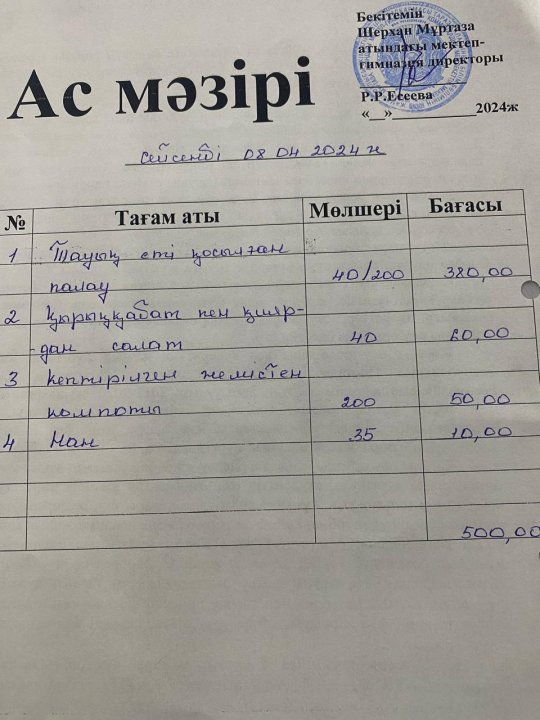 Бекітемін
Шерхан Мұртаза
атындағы мектеп-
гимназия директоры
Р.Р.Есеева
«__»____________2024ж
Ас мәзірі
Сейсенбі 08 04 2024 ж
№ Тағам аты Мөлшері Бағасы
1 Тауық еті қосылған
палау 40/200 380,00
2 Қырыққабат пен қияр-
-дан салат 40 60,00
3 Кептірілген жемістен
компоты 200 50,00
4 Нан 35 10,00
500,00